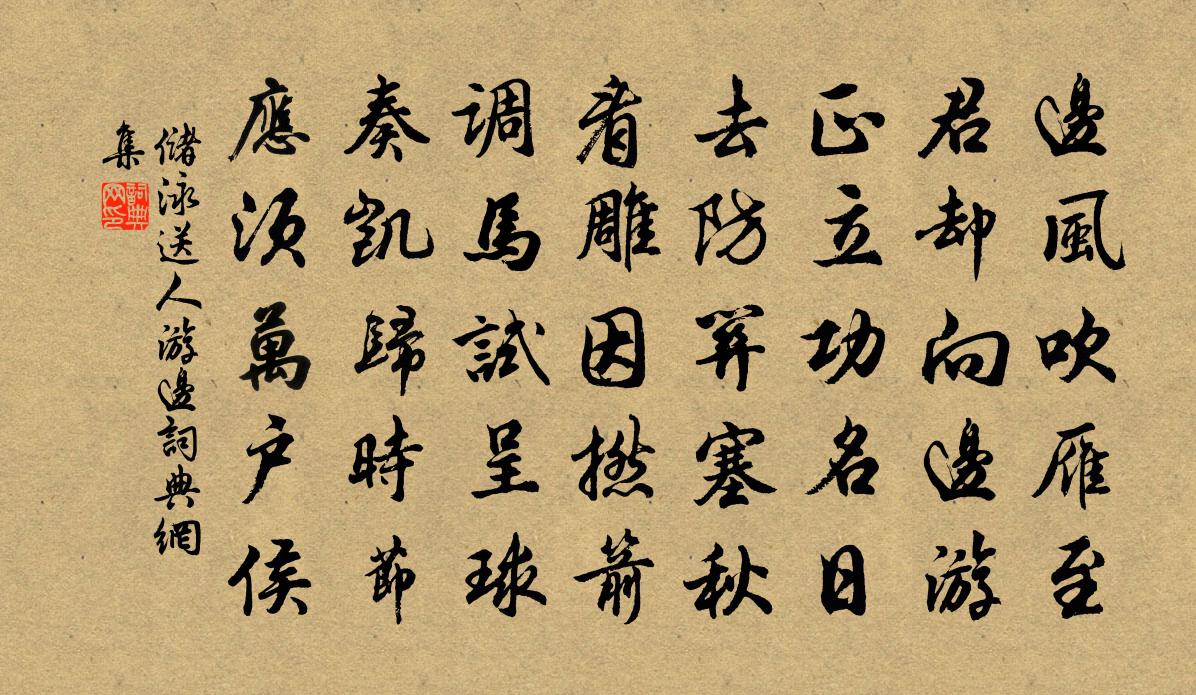 邊風吹雁至
君却向邊游
正立功名日
去防关塞秋
看雕因撚箭
调馬試呈球
奏凱歸時節
應須萬户侯
儲泳送人游邊詞典網
集
詞典
网印